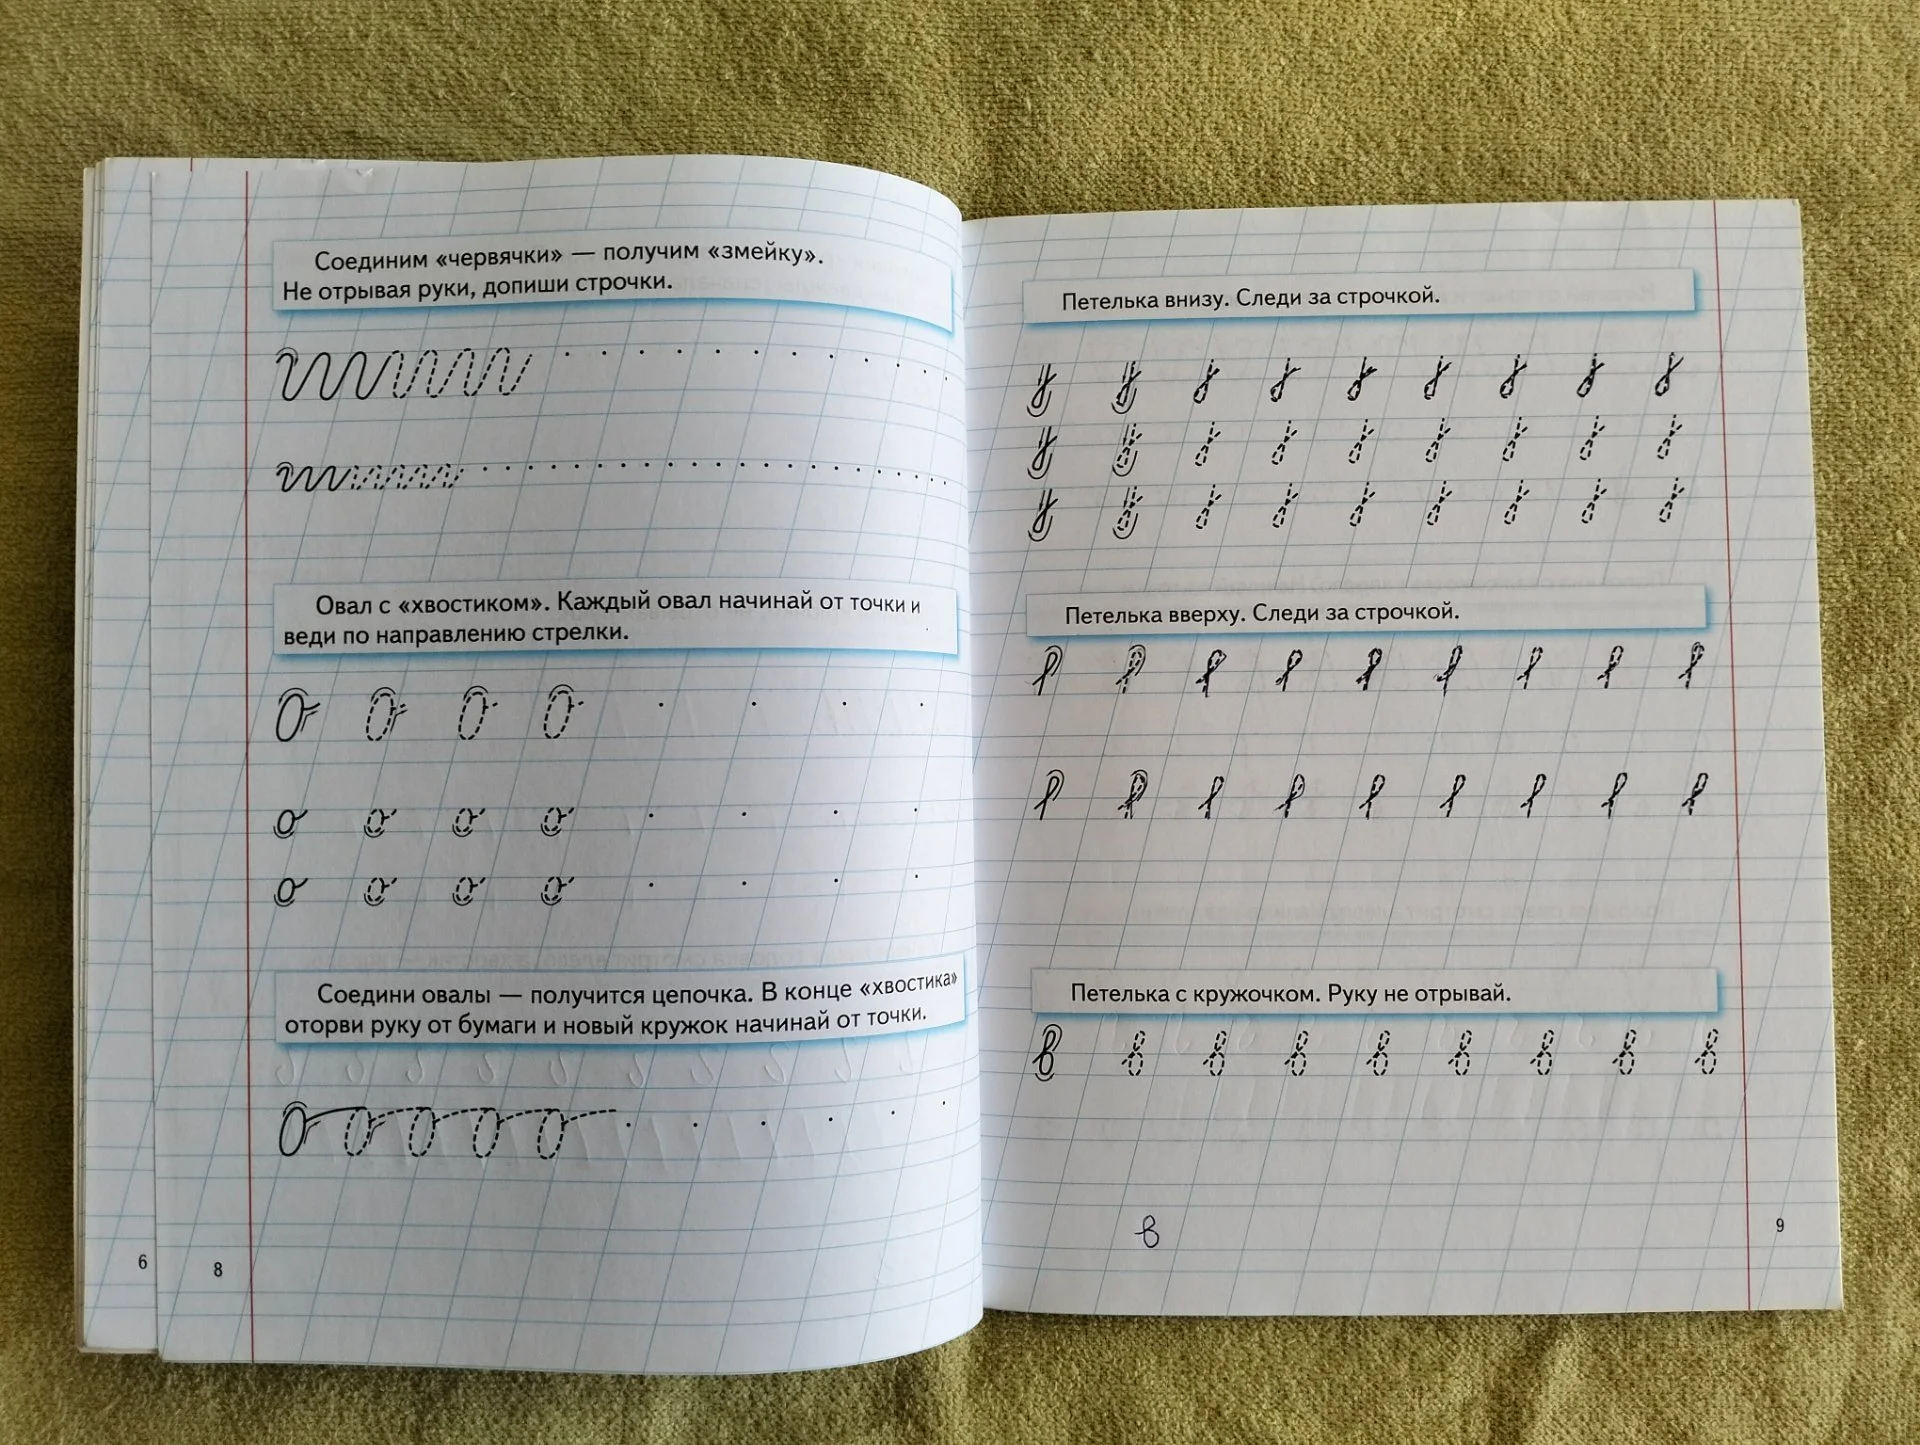 Соединим «червячки» — получим «змейку».
Не отрывая руки, допиши строчки.
Овал с «хвостиком». Каждый овал начинай от точки и
веди по направлению стрелки.
Соедини овалы — получится цепочка. В конце «хвостика»
оторви руку от бумаги и новый кружок начинай от точки.
6
8
Петелька внизу. Следи за строчкой.
Петелька вверху. Следи за строчкой.
Петелька с кружочком. Руку не отрывай.
в
9